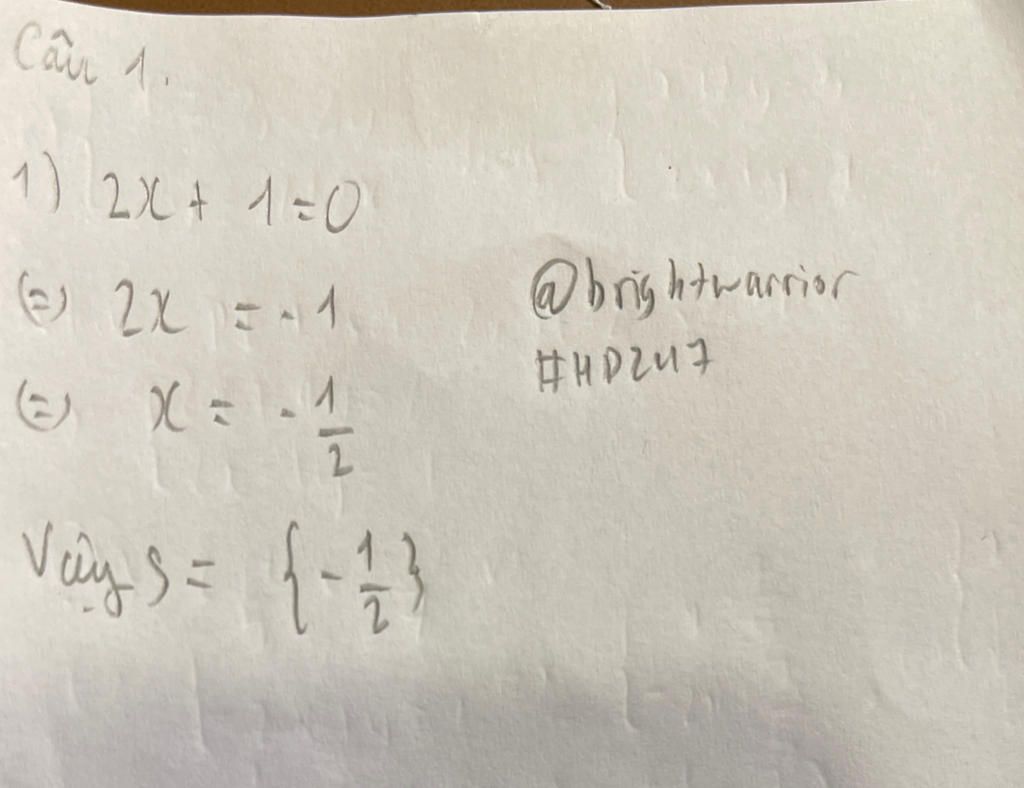 Câu 1.
1) 2x + 1 = 0
(=) 2x = -1
(=) x = -1/2
Vậy S = {-1/2}
@brightwarrior
#HD247